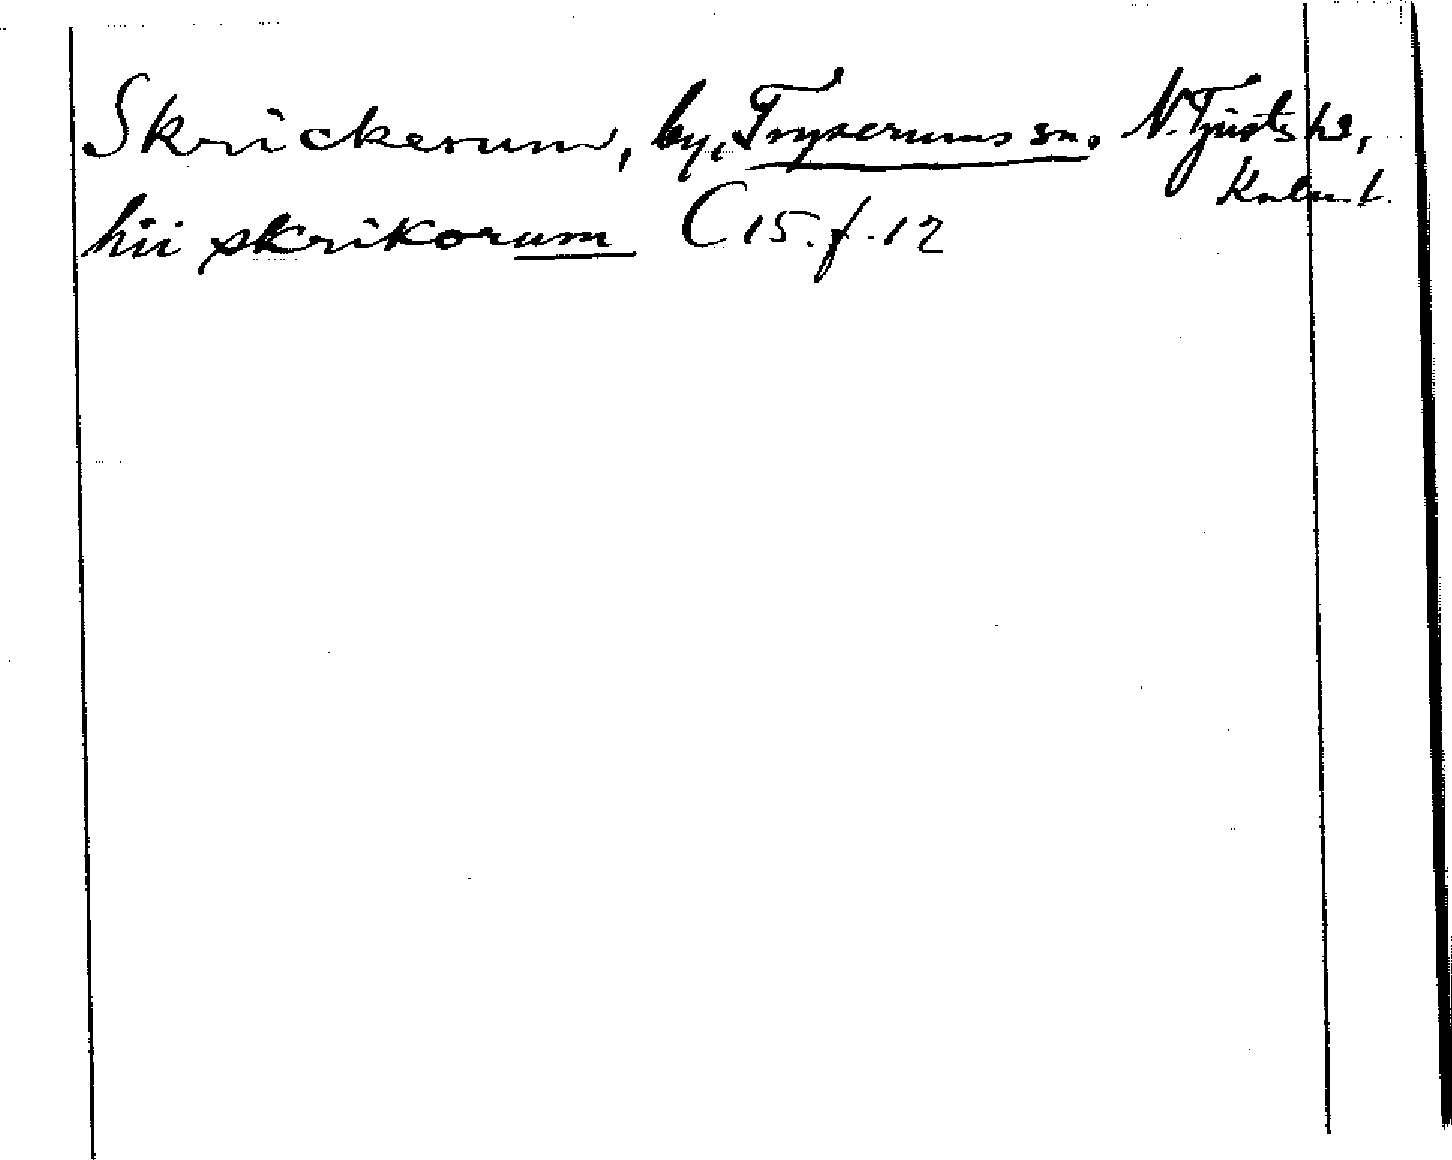 Skrickerum, by, Tryserums sn. N. Tjusts hd,
Kalm. l.
hii skrikorum C 15. f. 12